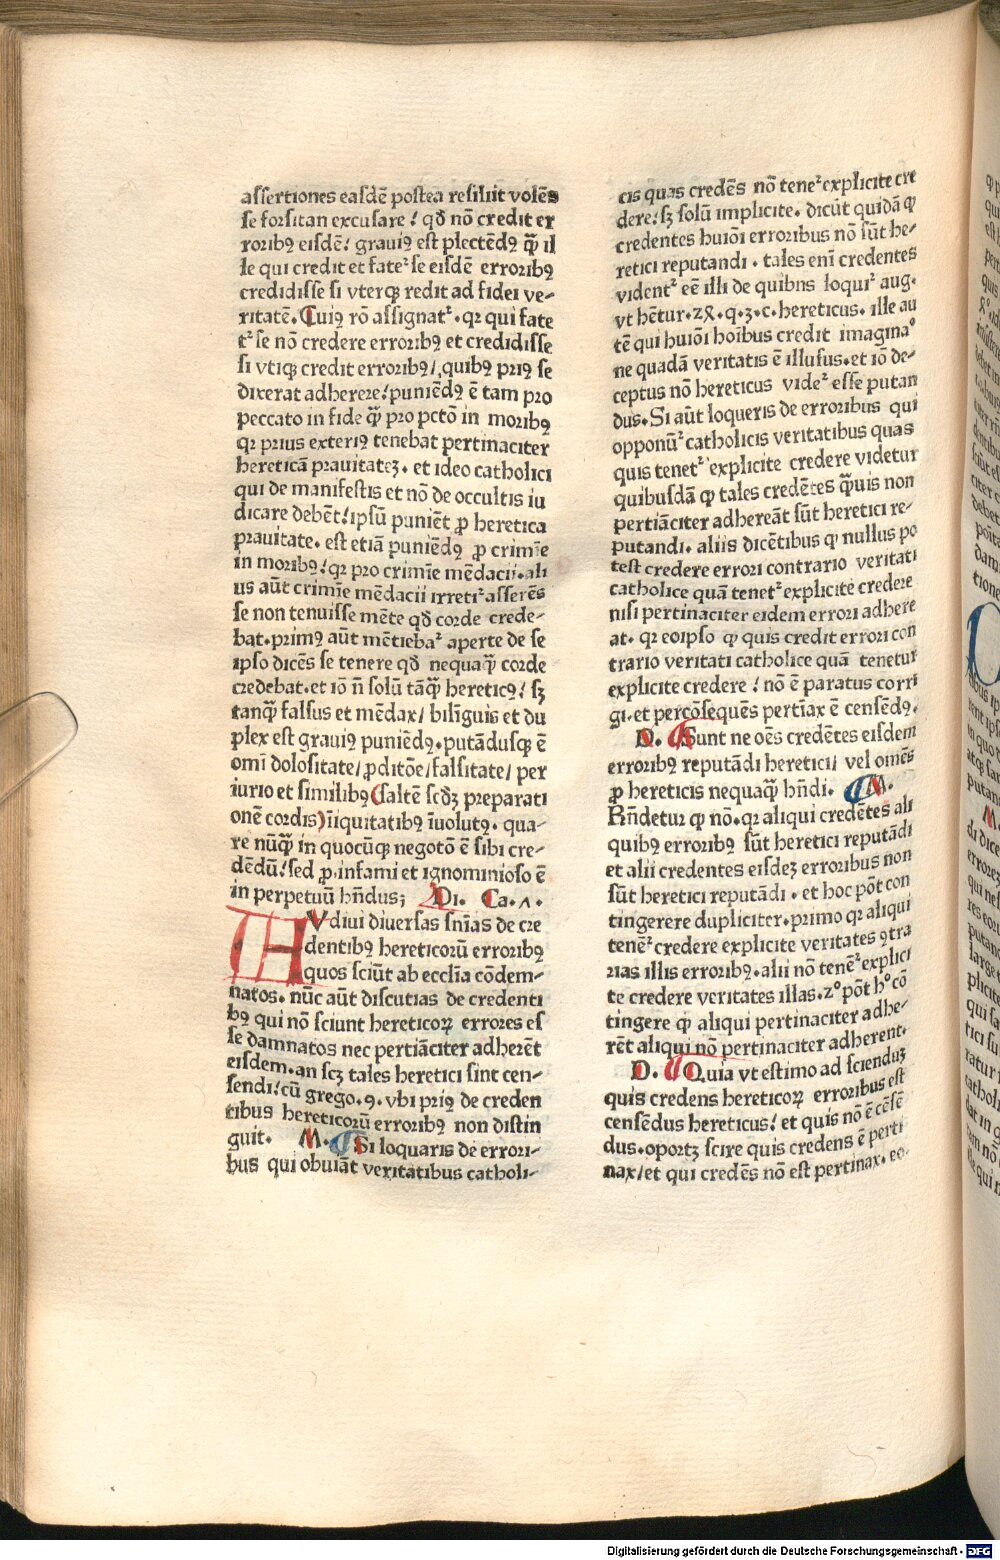 assertiones easdē postea resiliit volēs
se forsitan excusare / qđ nō credit er
roribꝯ eisdē / grauiꝯ est plectēdꝯ qᷓ il
le qui credit et fatet᷑ se eisdē erroribꝯ
credidisse si vterqꝫ redit ad fidei ve-
ritatē. Cuiꝯ rō assignat᷑. qꝛ qui fate
t᷑ se nō credere erroribꝯ et credidisse
si vtiqꝫ credit erroribꝯ/ quibꝯ priꝯ se
dixerat adherere/ puniēdꝯ ē tam pro
peccato in fide qᷓ pro pctō in moribꝯ
qꝛ prius exteriꝯ tenebat pertinaciter
hereticā prauitateꝫ. et ideo catholici
qui de manifestis et nō de occultis iu
dicare debēt/ ipsū puniēt ꝓ heretica
prauitate. est etiā puniēdꝯ ꝓ crimīe
in moribꝯ/ qꝛ pro crimīe mēdacii. ali
us aūt crimīe mēdacii irretit᷑ asserēs
se non tenuisse mēte qđ corde crede-
bat. primꝯ aūt mētiebat᷑ aperte de se
ipso dicēs se tenere qđ nequaqᷓ corde
credebat. et iō n̄ solū tāqᷓ hereticꝯ/ sꝫ
tanqᷓ falsus et mēdax/ bilinguis et du
plex est grauiꝯ puniēdꝯ. putādusqꝫ ē
omī dolositate/ ꝓditōe/ falsitate/ per
iurio et similibꝯ (saltē scđꝫ preparati
onē cordis) īiquitatibꝯ īuolutꝯ. qua-
re nūqᷓ in quocūqꝫ negotō ē sibi cre-
dēdū/ sed ꝓ infami et ignominioso ē
in perpetuū hn̄dus; Di. Ca. ʌ.
AVdiui diuersas sn̄ias de cre
dentibꝯ hereticorū erroribꝯ
quos sciūt ab eccl̄ia cōdem-
natos. nūc aūt discutias de credenti
bꝯ qui nō sciunt hereticoꝝ errores es
se damnatos nec pertīaciter adherēt
eisdem. an scꝫ tales heretici sint cen-
sendi/ cū grego. 9. vbi priꝯ de creden
tibus hereticorū erroribꝯ non distin
guit. M. Si loquaris de errori-
bus qui obuiāt veritatibus catholi-
cis quas credēs nō tenet᷑ explicite cre
dere/ sꝫ solū implicite. dicūt quidā ꝙ
credentes huiōi erroribus nō sūt he-
retici reputandi. tales enī credentes
vident᷑ eē illi de quibns loquit᷑ aug.
vt hētur. 2ꝝ. q. 3. c. hereticus. ille au
tē qui huiōi hoībus credit imagina°
ne quadā veritatis ē illusus. et iō de-
ceptus nō hereticus videt᷑ esse putan
dus. Si aūt loqueris de erroribus qui
opponūt᷑ catholicis veritatibus quas
quis tenet᷑ explicite credere videtur
quibusdā ꝙ tales credētes qᷓuis non
pertīaciter adhereāt sūt heretici re-
putandi. aliis dicētibus ꝙ nullus po
test credere errori contrario veritati
catholice quā tenet᷑ explicite credere
nisi pertinaciter eidem errori adhere
at. qꝛ eoipso ꝙ quis credit errori con
trario veritati catholice quā tenetur
explicite credere / nō ē paratus corri
gi. et percōsequēs pertīax ē censēdꝯ.
D. Sunt ne oēs credētes eisdem
erroribꝯ reputādi heretici/ vel omēs
ꝓ hereticis nequaqᷓ hn̄di. M.
Rn̄detur ꝙ nō. qꝛ aliqui credētes ali
quibꝯ erroribꝯ sūt heretici reputādi
et alii credentes eisdeꝫ erroribus non
sūt heretici reputādi. et hoc pōt con
tingerere dupliciter. primo qꝛ aliqui
tenēt᷑ credere explicite veritates ꝯtra
rias illis erroribꝯ. alii nō tenēt᷑ explici
te credere veritates illas. 2° pōt h° cō
tingere ꝙ aliqui pertinaciter adhe-
rēt aliqui nō pertinaciter adherent.
D. Quia vt estimo ad sciendūꝫ
quis credens hereticoꝝ erroribus est
censēdus hereticus/ et quis nō ē cēsē
dus. oportꝫ scire quis credens ē perti
nax/ et qui credēs nō est pertinax. eo-
Digitalisierung gefördert durch die Deutsche Forschungsgemeinschaft - DFG